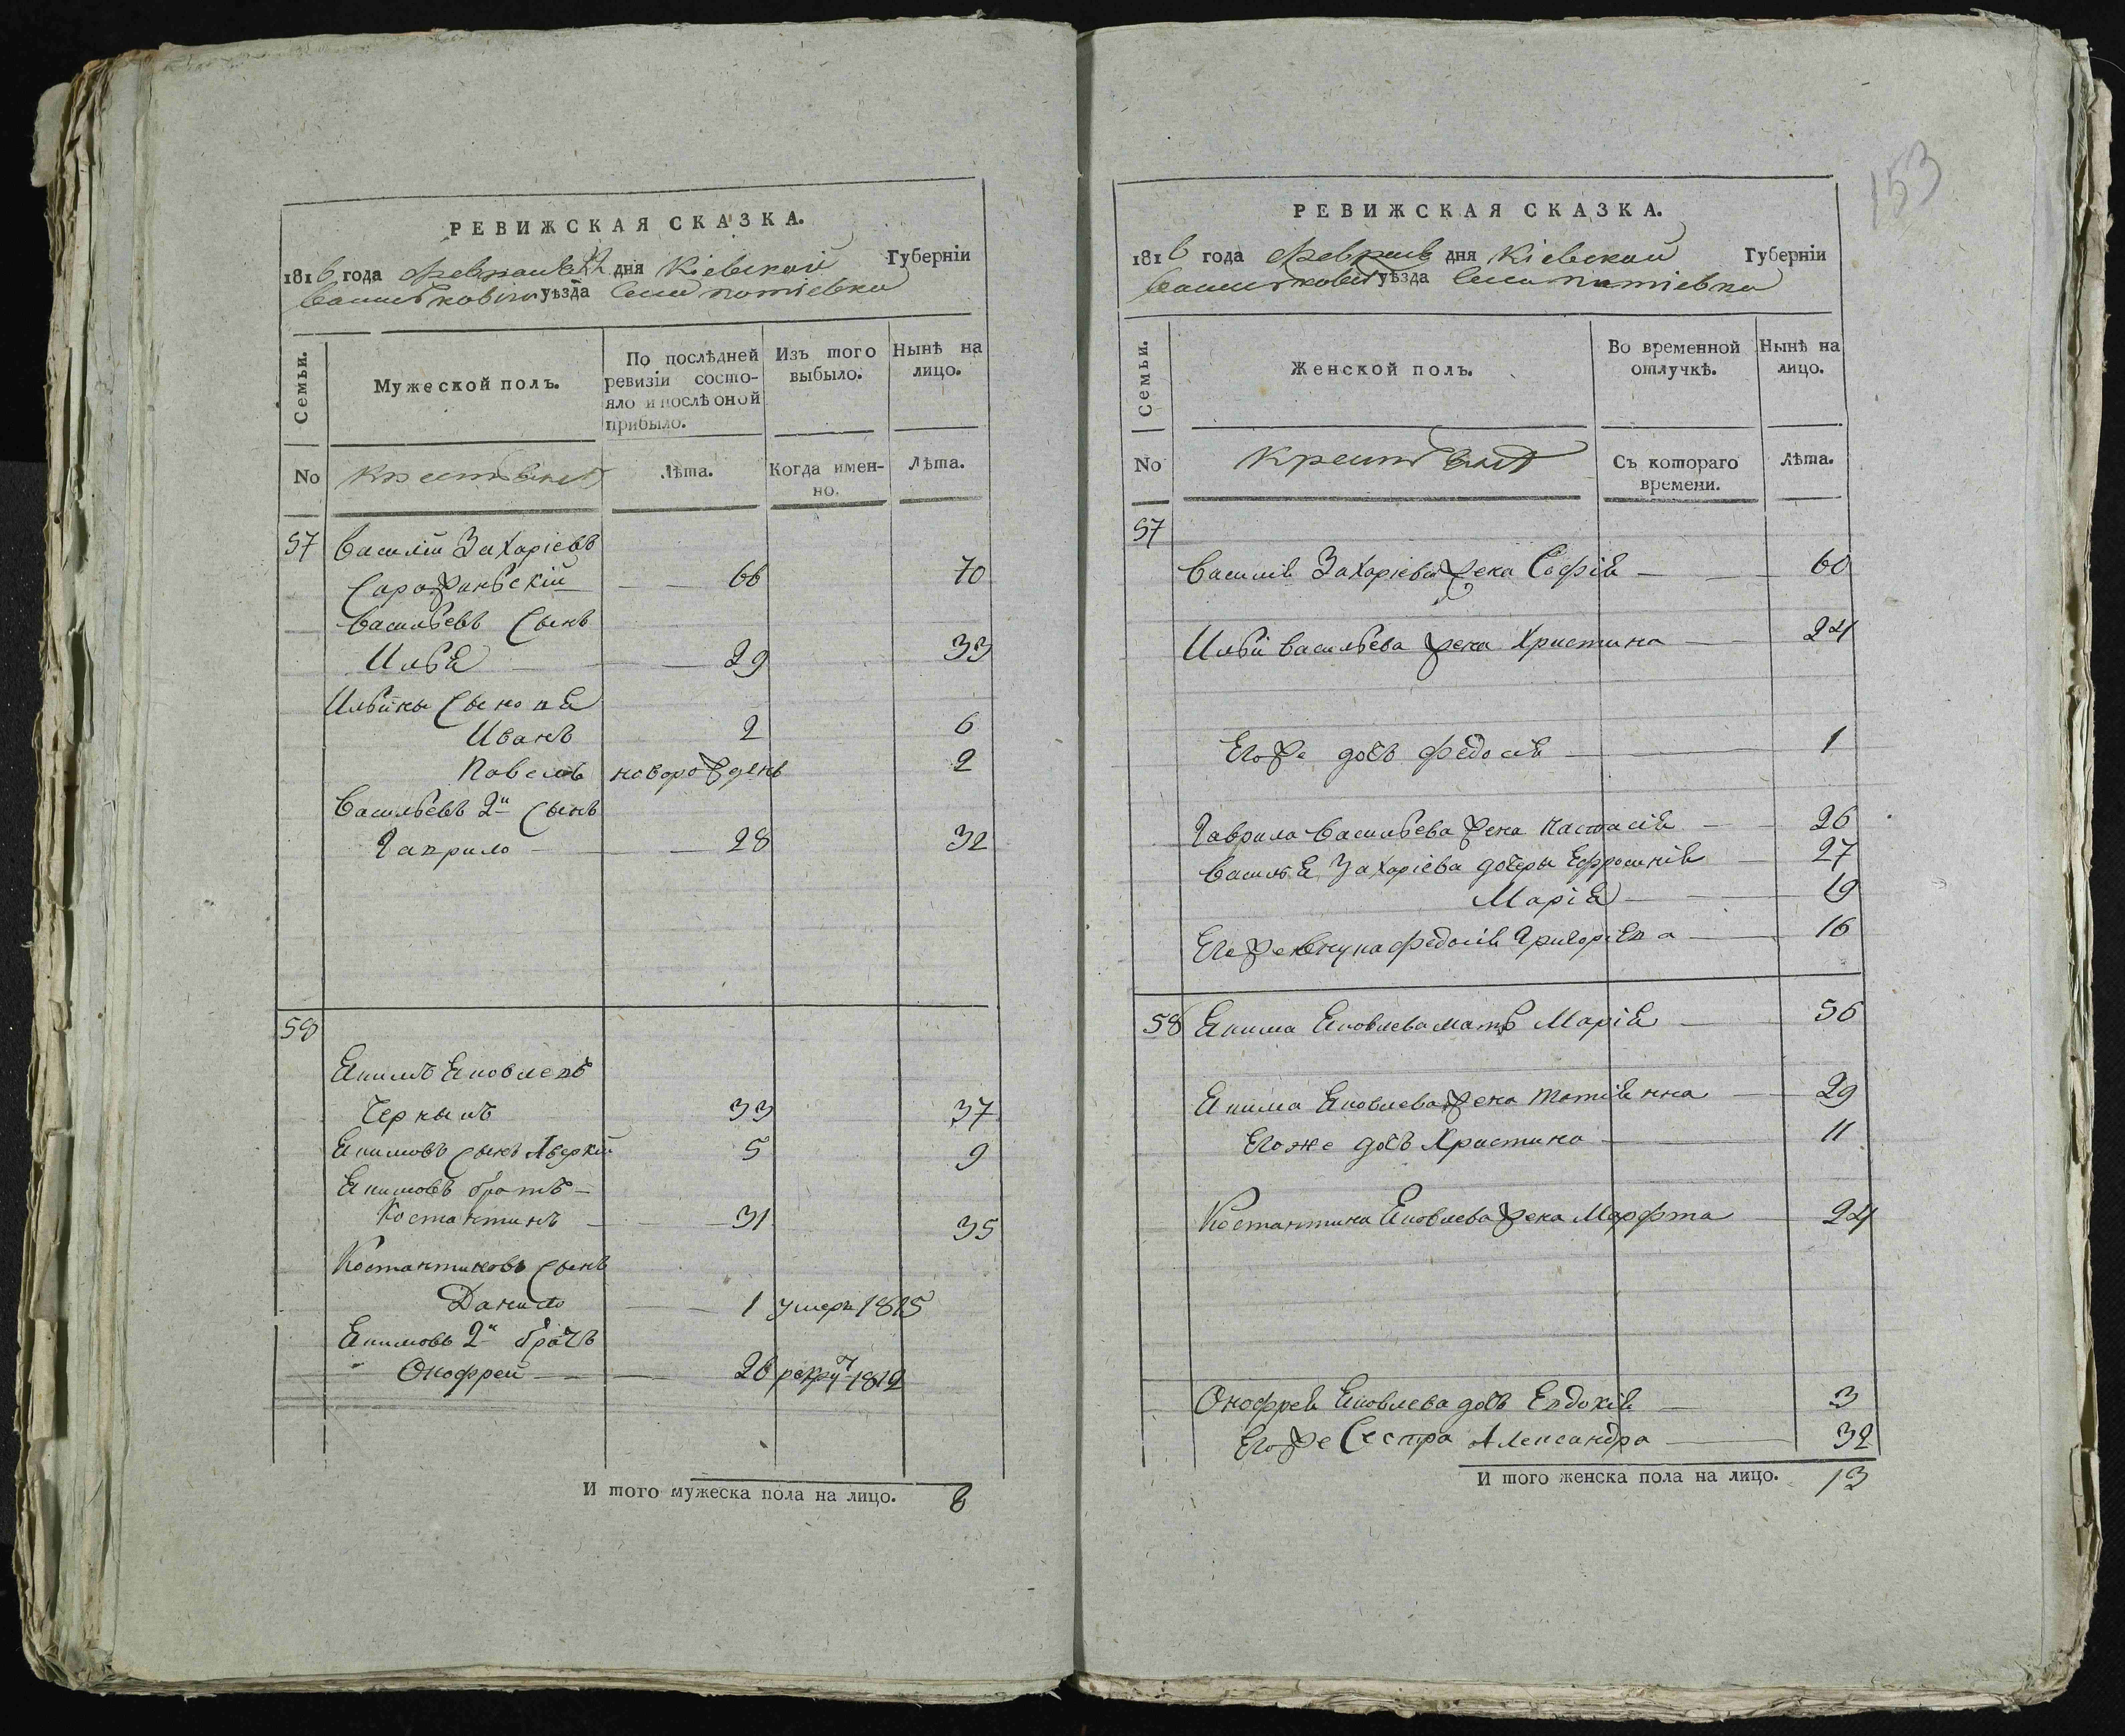 РЕВИЖСКАЯ СКАЗКА.
1816 года февраля дня Кіевской Губерніи
Васильковского уѣзда Села Потіевки
Семьи.
Мужеской полъ.
По послѣдней ревизіи состояло и послѣ оной прибыло.
Изъ того выбыло.
Нынѣ на лицо.
No
Лѣта.
Когда именно.
Лѣта.
57 Василій Захаріевъ
Сарафанскій 66 70
Васильевъ Сынъ
Илья 29 33
Ильины Сыновя
Иванъ 2 6
Павелъ новорожденъ 2
Васильевъ 2й Сынъ
Гаврило 28 32
58
Якимъ Яковлевъ
Чернышъ 33 37
Якимовъ Сынъ Аверкій 5 9
Якимовъ братъ
Костантинъ 31 35
Костантиновъ Сынъ
Данило 1 умеръ 1815
Якимовъ 2й братъ
Онофрей 26 рекру 1812
И того мужеска пола на лицо. 8
153
РЕВИЖСКАЯ СКАЗКА.
1816 года февраля дня Кіевской Губерніи
Васильковской уѣзда Села Потіевки
Семьи.
Женской полъ.
Во временной отлучкѣ.
Нынѣ на лицо.
No
Съ котораго времени.
Лѣта.
57
Василія Захаріева жена Софія 60
Ильи Васильева жена Христина 24
Егоже дочь Федосія 1
Гаврила Васильева жена Настасія 26
Василья Захаріева дочеры Ефросинія 27
Марія 19
Егоже внука Федосія Григоріева 16
58 Якима Яковлева мать Марія 56
Якима Яковлева жена Татіянна 29
Егоже дочь Христина 11
Костантина Яковлева жена Марфта 24
Онофрея Яковлева дочь Евдокія 3
Егоже Сестра Александра 32
И того женска пола на лицо. 13